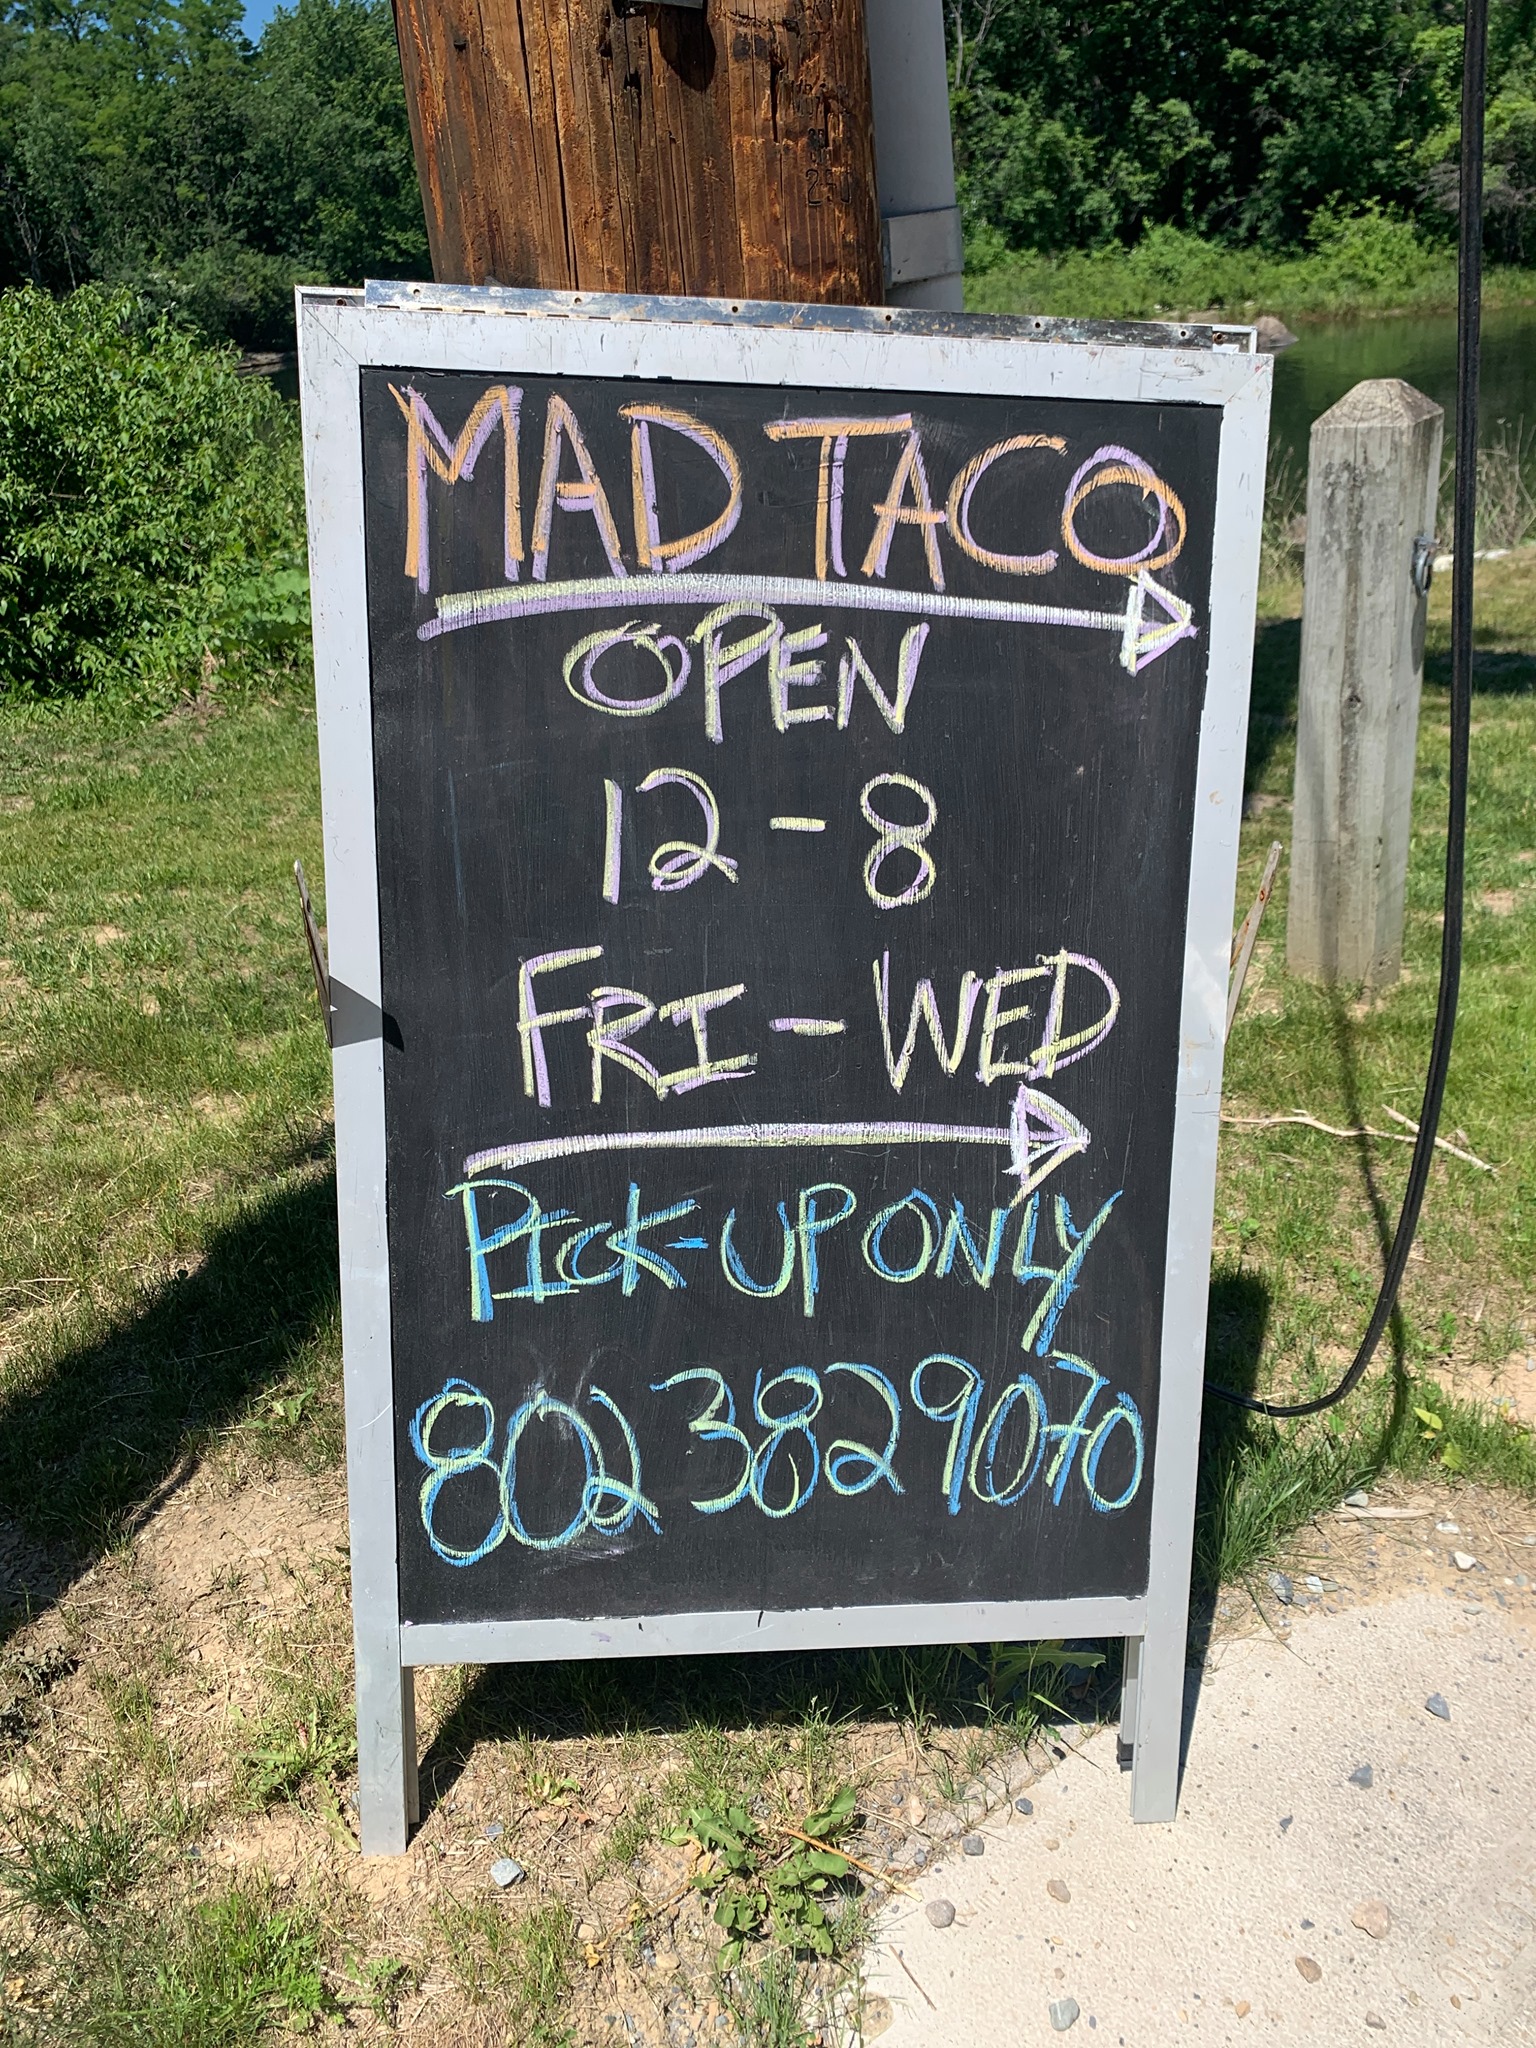 MAD TACO
OPEN
12 - 8
FRI - WED
PICK-UP ONLY
802 382 9070